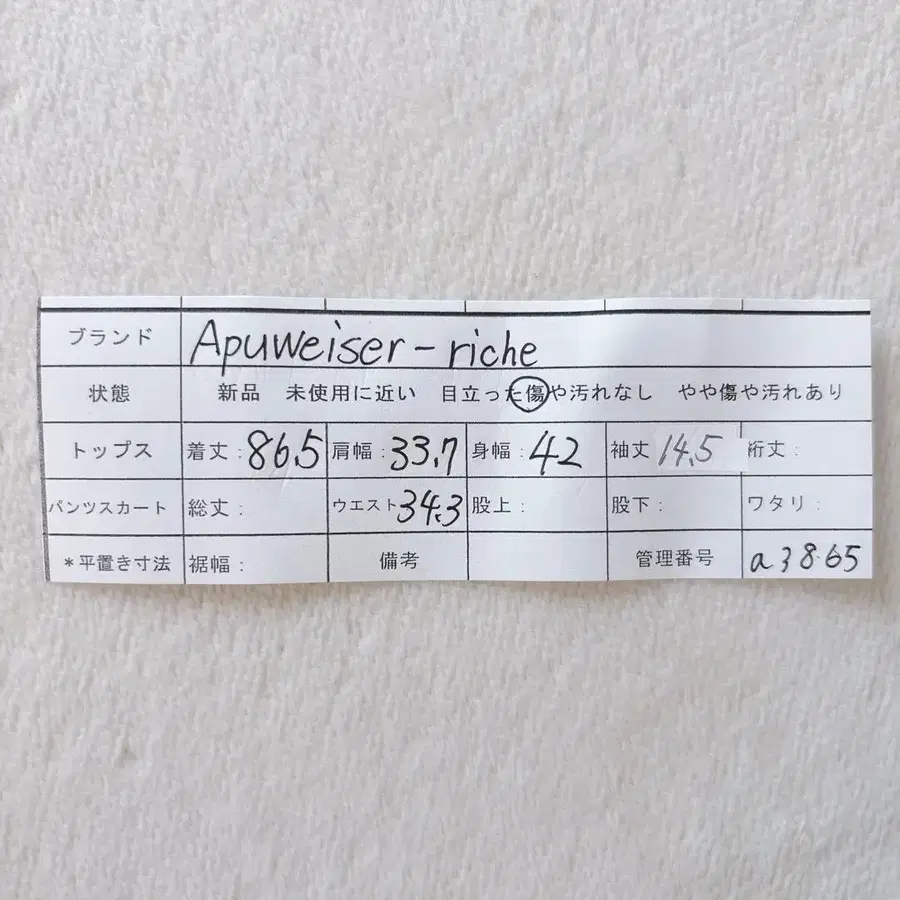 ブランド Apuweiser-riche
状態 新品 未使用に近い 目立った傷や汚れなし やや傷や汚れあり
トップス 着丈:86.5 肩幅:33.7 身幅:42 袖丈 14.5 裄丈:
パンツスカート 総丈: ウエスト34.3 股上: 股下: ワタリ:
*平置き寸法 裾幅: 備考 管理番号 a3865